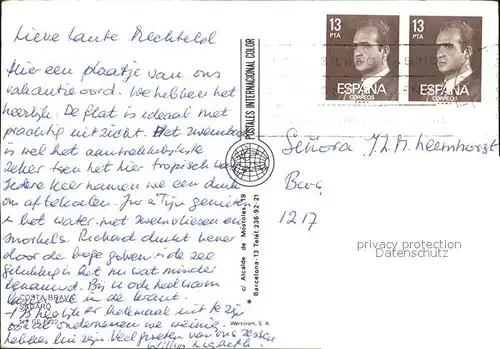 Lieve tante Mechteld
Hier een plaatje van ons
vakantieoord. We hebben het
heerlijk. De flat is ideaal met
prachtig uitzicht. Het zwembad
is wel het aantrekkelijkste
zeker toen het hier tropisch was
Iedere keer namen we een duik
om af te koelen. Im a Tijn genieten
het water met zwemvliezen en
snorkels. Richard duikt liever
door de hoge golven. de zee
gelukkig is het nu wat minder
benauwd. Bij u ook heel warm
in de krant.
helemaal uit te zijn
ondernemen we weinig.
hebben hier zijn. Veel groeten van ons zessen
Willem Liesbeth
COSTA BRAVA
S'AGARO
POSTALES INTERNACIONAL COLOR
c/ Alcalde de Móstoles, 19
Barcelona-13 Teléf. 236-92-21
Werstrom, S. A.
13
PTA
ESPAÑA
CORREOS
13
PTA
ESPAÑA
CORREOS
Señora J.L.M.
1217
privacy protection
Datenschutz